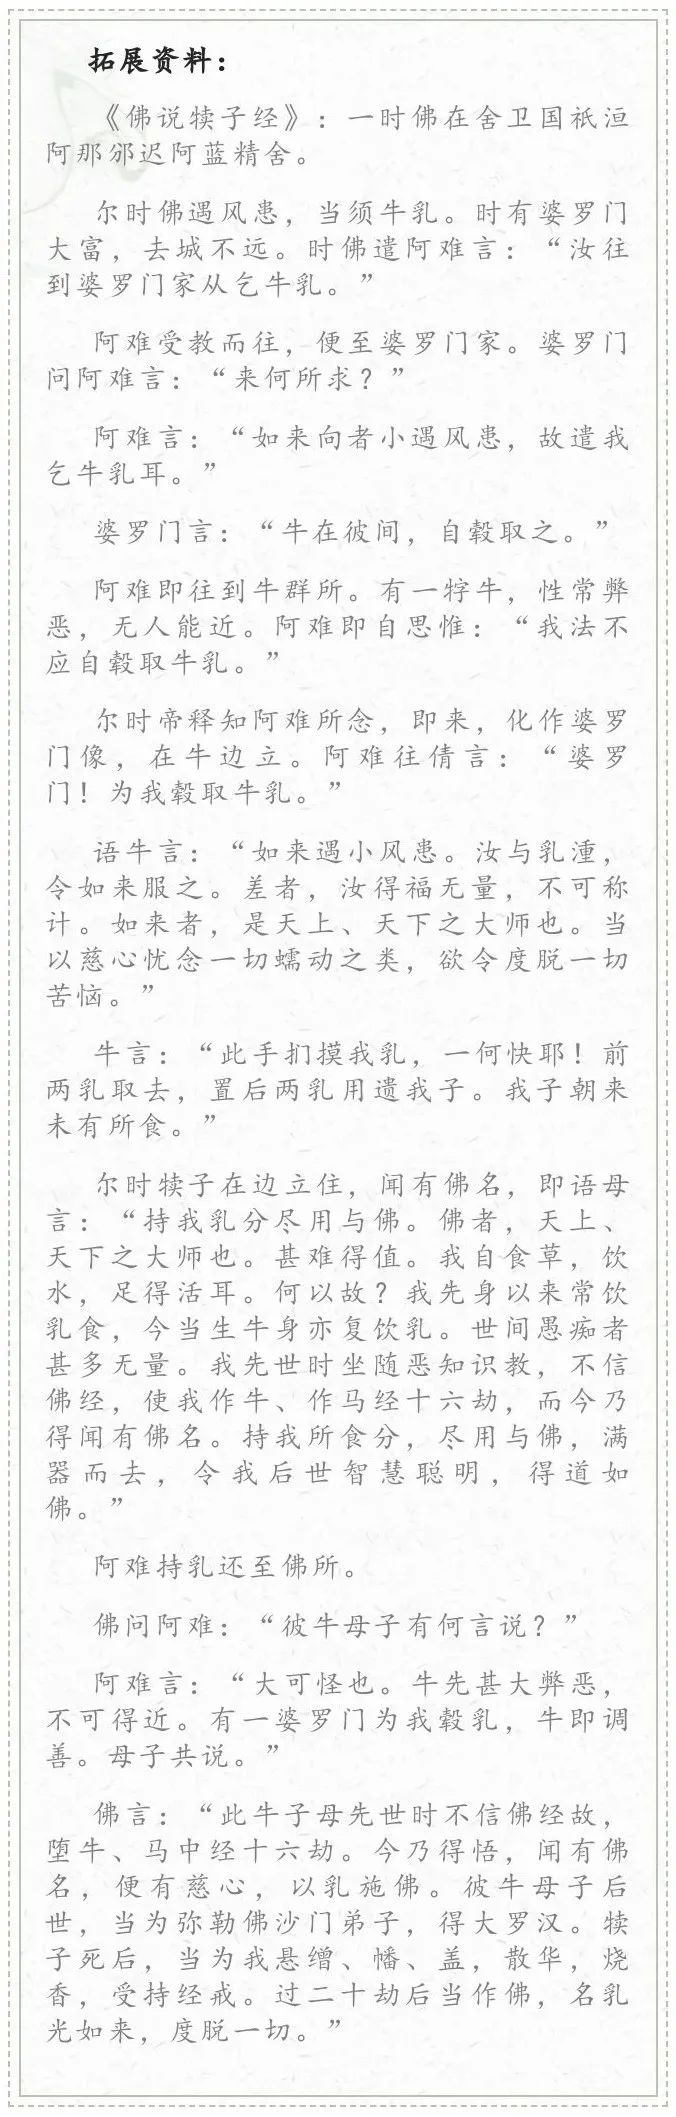 拓展资料：
《佛说犊子经》：一时佛在舍卫国祇洹
阿那邠迟阿蓝精舍。
尔时佛遇风患，当须牛乳。时有婆罗门
大富，去城不远。时佛遣阿难言：“汝往
到婆罗门家从乞牛乳。”
阿难受教而往，便至婆罗门家。婆罗门
问阿难言：“来何所求？”
阿难言：“如来向者小遇风患，故遣我
乞牛乳耳。”
婆罗门言：“牛在彼间，自毂取之。”
阿难即往到牛群所。有一牸牛，性常弊
恶，无人能近。阿难即自思惟：“我法不
应自毂取牛乳。”
尔时帝释知阿难所念，即来，化作婆罗
门像，在牛边立。阿难往倩言：“婆罗
门！为我毂取牛乳。”
语牛言：“如来遇小风患。汝与乳湩，
令如来服之。差者，汝得福无量，不可称
计。如来者，是天上、天下之大师也。当
以慈心忧念一切蠕动之类，欲令度脱一切
苦恼。”
牛言：“此手扪摸我乳，一何快耶！前
两乳取去，置后两乳用遗我子。我子朝来
未有所食。”
尔时犊子在边立住，闻有佛名，即语母
言：“持我乳分尽用与佛。佛者，天上、
天下之大师也。甚难得值。我自食草，饮
水，足得活耳。何以故？我先身以来常饮
乳食，今当生牛身亦复饮乳。世间愚痴者
甚多无量。我先世时坐随恶知识教，不信
佛经，使我作牛、作马经十六劫，而今乃
得闻有佛名。持我所食分，尽用与佛，满
器而去，令我后世智慧聪明，得道如
佛。”
阿难持乳还至佛所。
佛问阿难：“彼牛母子有何言说？”
阿难言：“大可怪也。牛先甚大弊恶，
不可得近。有一婆罗门为我毂乳，牛即调
善。母子共说。”
佛言：“此牛子母先世时不信佛经故，
堕牛、马中经十六劫。今乃得悟，闻有佛
名，便有慈心，以乳施佛。彼牛母子后
世，当为弥勒佛沙门弟子，得大罗汉。犊
子死后，当为我悬缯、幡、盖，散华，烧
香，受持经戒。过二十劫后当作佛，名乳
光如来，度脱一切。”